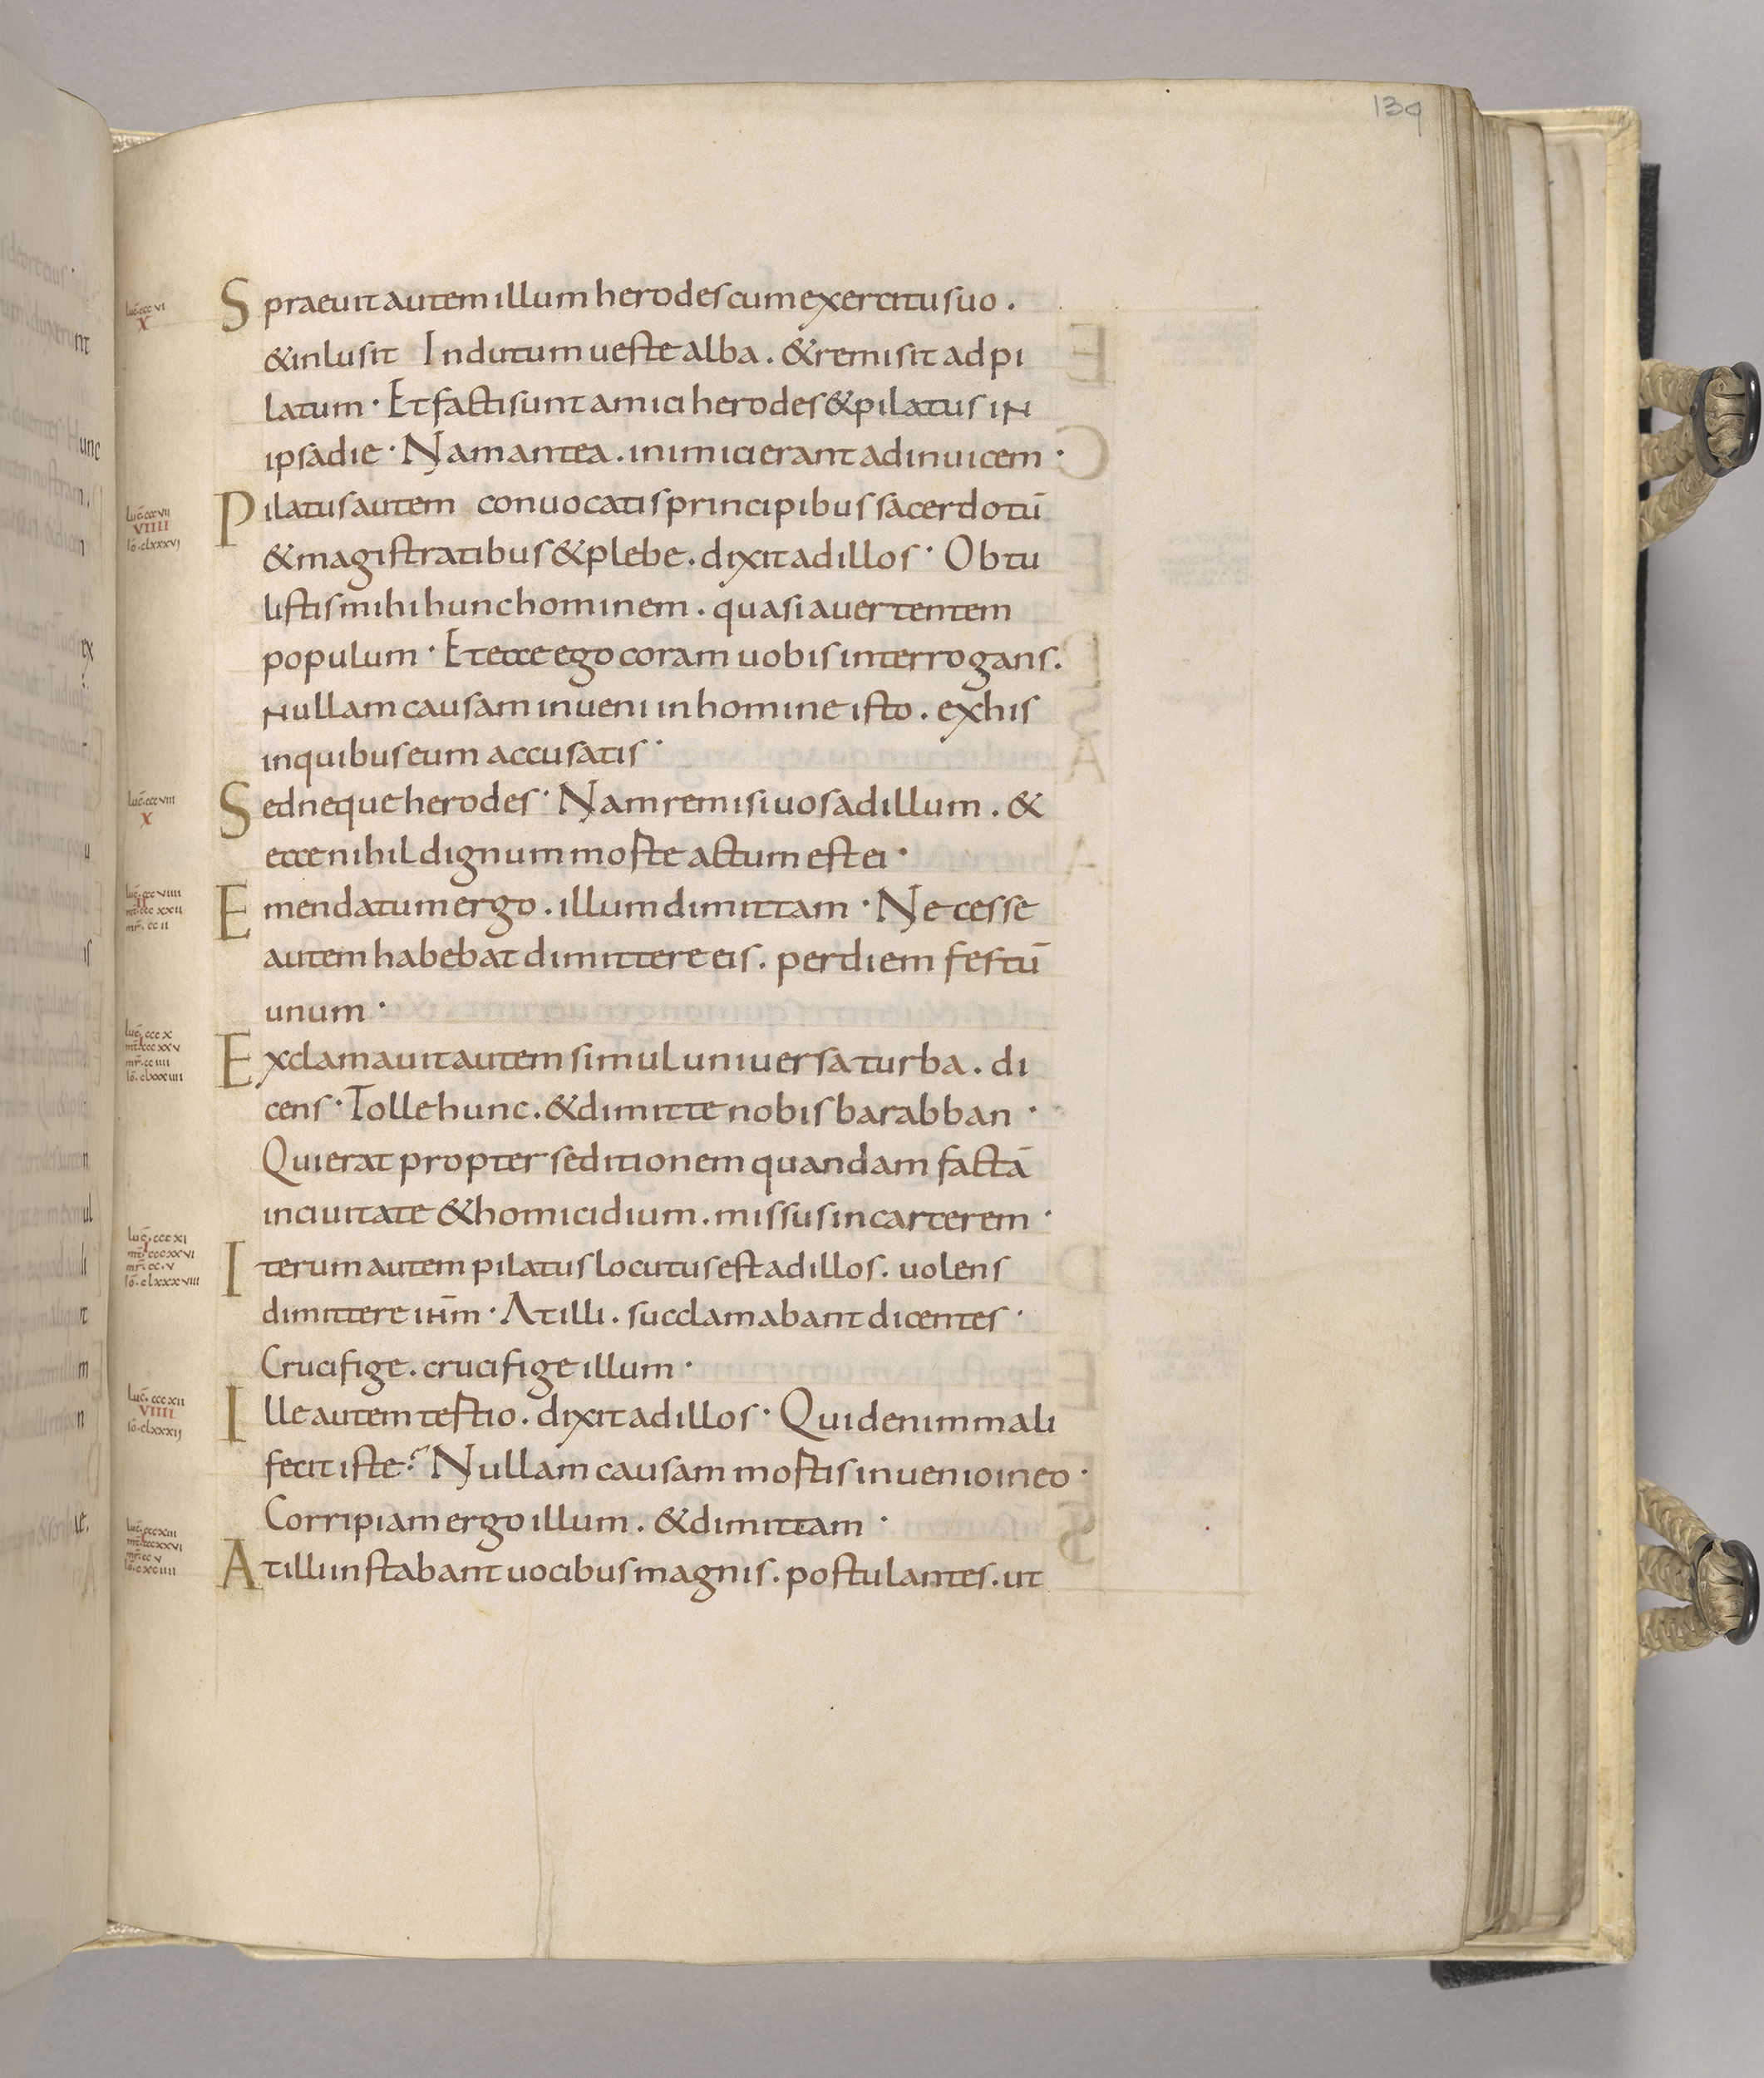 139
luc̄ ccc vi
x
Spraeuit autem illum herodes cum exercitu suo .
& inlusit Indutum ueste alba . & remisit ad pi
latum · Et facti sunt amici herodes & pilatus in
ipsa die · Nam antea . inimici erant ad inuicem ·
luc̄ ccc vii
viiii
iō clxxxvi
Pilatus autem conuocatis principibus sacerdotū
& magistratibus & plebe . dixit ad illos · Obtu
listis mihi hunc hominem . quasi auertentem
populum · Et ecce ego coram uobis interrogans .
Nullam causam inueni in homine isto . ex his
in quibus eum accusatis ·
luc̄ ccc viii
x
Sed neque herodes · Nam remisi uos ad illum . &
ecce nihil dignum morte actum est ei ·
luc̄ ccc viiii
ii
mt̄ ccc xxii
mr̄ cc ii
Emendatum ergo . illum dimittam · Necesse
autem habebat dimittere eis . per diem festū
unum ·
luc̄ ccc x
mt̄ ccc xxv
mr̄ cc iiii
iō clxxxiiii
Exclamauit autem simul uniuersa turba . di
cens · Tolle hunc . & dimitte nobis barabban ·
Qui erat propter seditionem quandam factā
in ciuitate & homicidium . missus in carcerem ·
luc̄ ccc xi
mt̄ ccc xxvi
mr̄ cc v
iō clxxxviii
Iterum autem pilatus locutus est ad illos . uolens
dimittere ih̄m · At illi . succlamabant dicentes ·
Crucifige . crucifige illum ·
luc̄ ccc xii
viiii
iō clxxxii
Ille autem tertio . dixit ad illos · Quid enim mali
fecit iste ? Nullam causam mortis inuenio in eo ·
Corripiam ergo illum . & dimittam ·
luc̄ ccc xiii
mt̄ ccc xxvi
mr̄ cc v
iō cxciiii
At illi instabant uocibus magnis . postulantes . ut